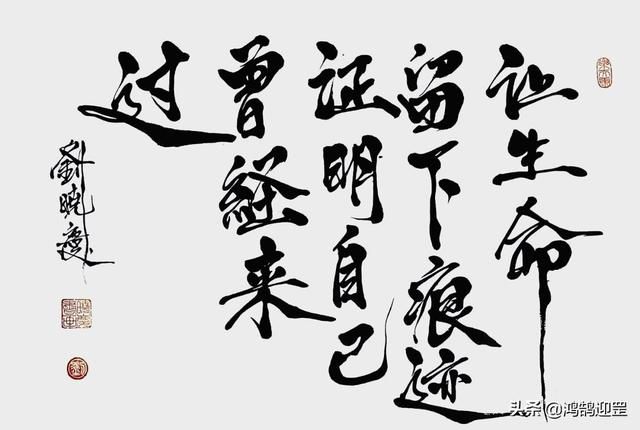 让生命
留下痕迹
证明自己
曾经来
过
劉晓慶
头条@鸿鹄迎罡